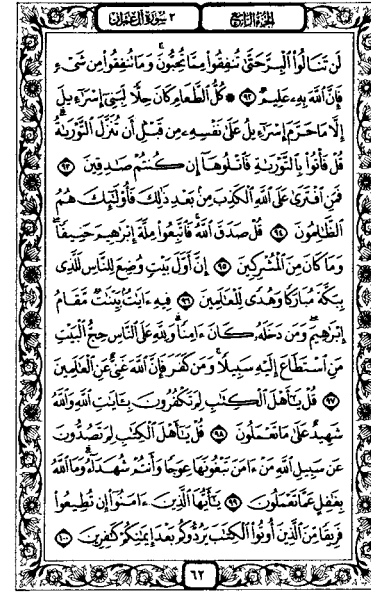 ٣ سورة آل عمران
الجزء الرابع
لَن تَنَالُوا۟ ٱلْبِرَّ حَتَّىٰ تُنفِقُوا۟ مِمَّا تُحِبُّونَ ۚ وَمَا تُنفِقُوا۟ مِن شَىْءٍ
فَإِنَّ ٱللَّهَ بِهِۦ عَلِيمٌ ﴿٩٢﴾ ۞ كُلُّ ٱلطَّعَامِ كَانَ حِلًّا لِّبَنِىٓ إِسْرَٰٓءِيلَ
إِلَّا مَا حَرَّمَ إِسْرَٰٓءِيلُ عَلَىٰ نَفْسِهِۦ مِن قَبْلِ أَن تُنَزَّلَ ٱلتَّوْرَىٰةُ ۗ
قُلْ فَأْتُوا۟ بِٱلتَّوْرَىٰةِ فَٱتْلُوهَآ إِن كُنتُمْ صَٰدِقِينَ ﴿٩٣﴾
فَمَنِ ٱفْتَرَىٰ عَلَى ٱللَّهِ ٱلْكَذِبَ مِنۢ بَعْدِ ذَٰلِكَ فَأُو۟لَٰٓئِكَ هُمُ
ٱلظَّٰلِمُونَ ﴿٩٤﴾ قُلْ صَدَقَ ٱللَّهُ ۗ فَٱتَّبِعُوا۟ مِلَّةَ إِبْرَٰهِيمَ حَنِيفًا ۖ
وَمَا كَانَ مِنَ ٱلْمُشْرِكِينَ ﴿٩٥﴾ إِنَّ أَوَّلَ بَيْتٍ وُضِعَ لِلنَّاسِ لَلَّذِى
بِبَكَّةَ مُبَارَكًا وَهُدًى لِّلْعَٰلَمِينَ ﴿٩٦﴾ فِيهِ ءَايَٰتٌۢ بَيِّنَٰتٌ مَّقَامُ
إِبْرَٰهِيمَ ۖ وَمَن دَخَلَهُۥ كَانَ ءَامِنًا ۗ وَلِلَّهِ عَلَى ٱلنَّاسِ حِجُّ ٱلْبَيْتِ
مَنِ ٱسْتَطَاعَ إِلَيْهِ سَبِيلًا ۚ وَمَن كَفَرَ فَإِنَّ ٱللَّهَ غَنِىٌّ عَنِ ٱلْعَٰلَمِينَ
﴿٩٧﴾ قُلْ يَٰٓأَهْلَ ٱلْكِتَٰبِ لِمَ تَكْفُرُونَ بِـَٔايَٰتِ ٱللَّهِ وَٱللَّهُ
شَهِيدٌ عَلَىٰ مَا تَعْمَلُونَ ﴿٩٨﴾ قُلْ يَٰٓأَهْلَ ٱلْكِتَٰبِ لِمَ تَصُدُّونَ
عَن سَبِيلِ ٱللَّهِ مَنْ ءَامَنَ تَبْغُونَهَا عِوَجًا وَأَنتُمْ شُهَدَآءُ ۗ وَمَا ٱللَّهُ
بِغَٰفِلٍ عَمَّا تَعْمَلُونَ ﴿٩٩﴾ يَٰٓأَيُّهَا ٱلَّذِينَ ءَامَنُوٓا۟ إِن تُطِيعُوا۟
فَرِيقًا مِّنَ ٱلَّذِينَ أُوتُوا۟ ٱلْكِتَٰبَ يَرُدُّوكُم بَعْدَ إِيمَٰنِكُمْ كَٰفِرِينَ ﴿١٠٠﴾
٦٢